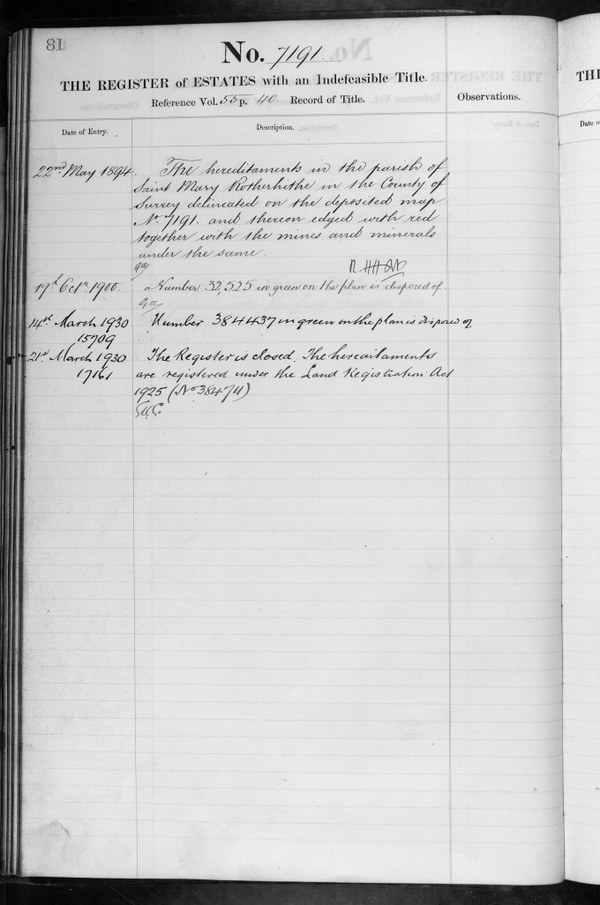 81
No. 7191.
THE REGISTER of ESTATES with an Indefeasible Title.
Reference Vol. 55 p. 40 Record of Title.
Observations.
Date of Entry.
Description.
22nd May 1894.
The hereditaments in the parish of
Saint Mary Rotherhithe in the County of
Surrey delineated on the deposited map
No. 7191. and thereon edged with red
together with the mines and minerals
under the same.
19th Octr. 1900.
Number 32,525 in green on the plan is disposed of.
14th March 1930
15709
Number 384437 in green on the plan is disposed of
21st March 1930
17161
The Register is closed. The hereditaments
are registered under the Land Registration Act
1925 (No 384711)
THE REGISTER